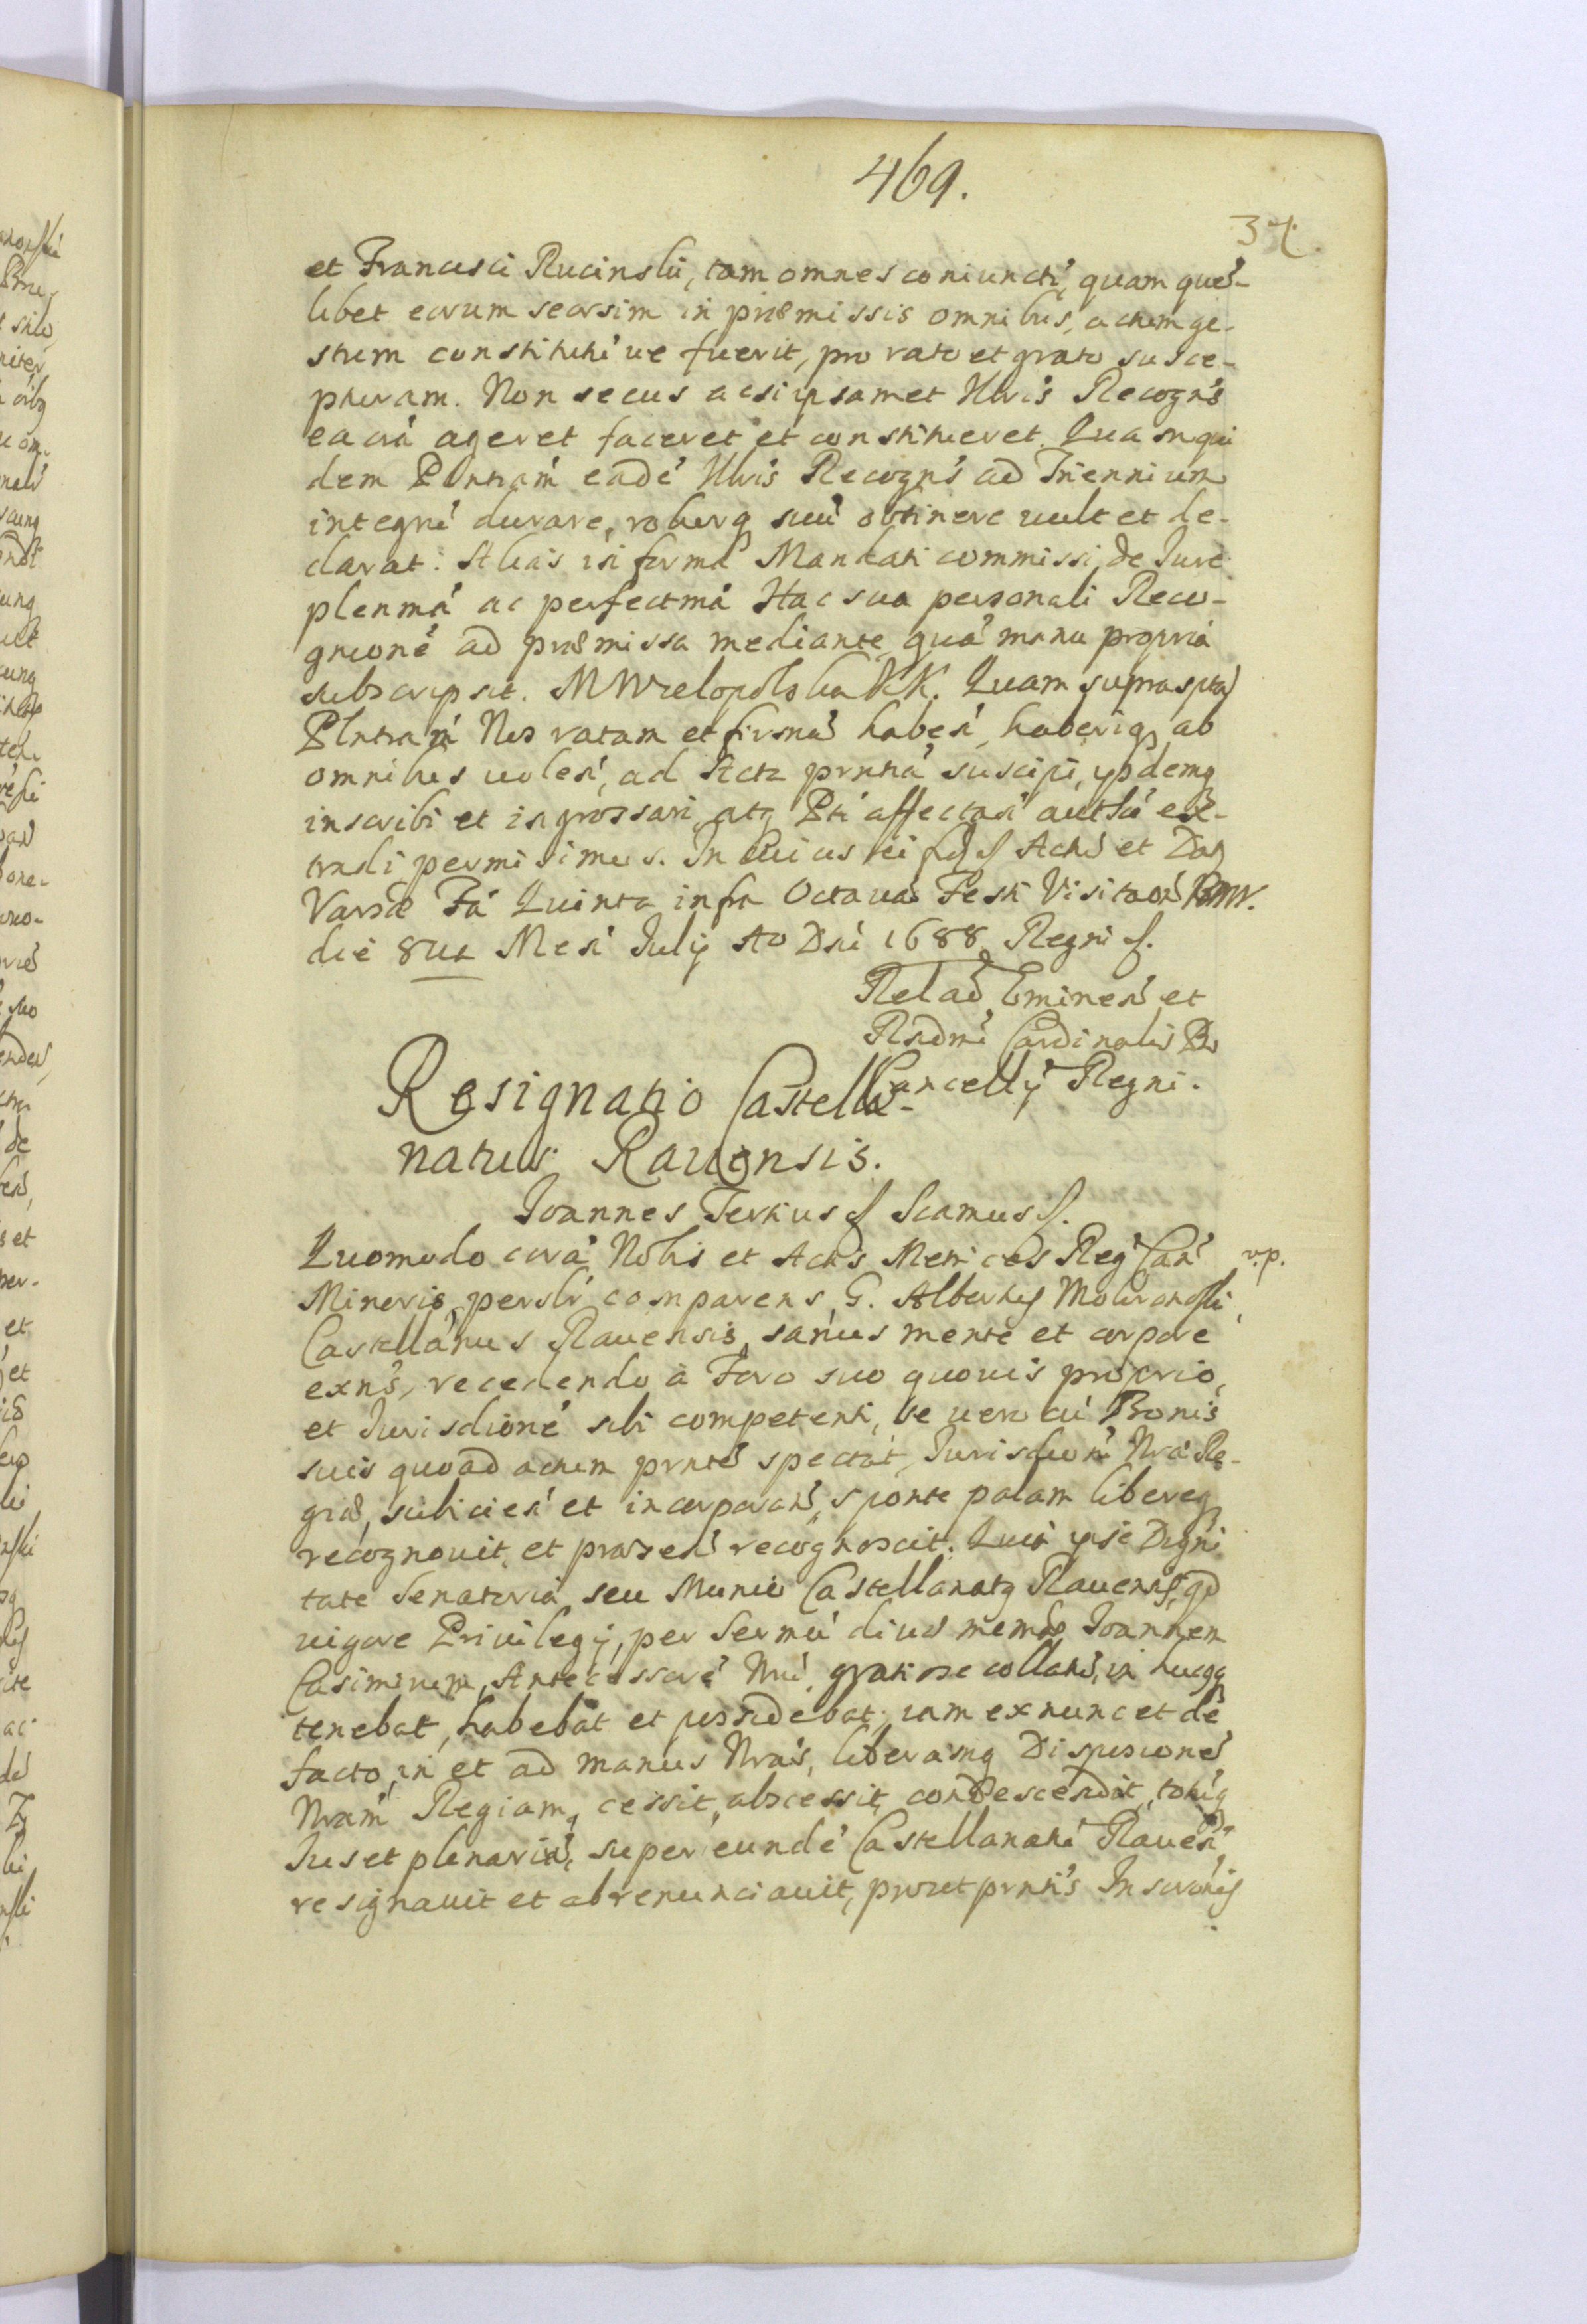 469.
37.
et Francisci Rucinskii, tam omnes coniuncti, quam quem-
libet eorum seorsim in præmissis omnibus, actum ge-
stum constitutu̇ve fuerit, pro rato et grato susce-
pturam. Non secus acsi ipsamet Illris Recogns
ea ageret faceret et constitueret. Quam qui
dem Plntiam eadē Illris Recogns ad Triennium
integrū durare, roburq suū obtinere uult et de-
clarat. Alias in forma Mandati commissi, de Iure
plenmā ac perfectmā Hac sua personali Reco-
gnicone ad præmissa mediante, quā manu propria
subscripsit. MWielopolska KK. Quam supraspta
Plntiam Nos ratam et firmā haben, haberiq ab
omnibus uolen, ad Acta prntia suscipi, ysdemq
inscribi et ingrossari, atq Pti affectan auth ex-
tradi permisimus. In cuius rei fid Actū et Dat
Vars Fa Quinta infra Octauas Festi Visitaon BMV.
die 8ua Mesi Julij Ao Dni 1688 Regni
Relad Eminen et
Rndmi Cardinalis Pro
Cancellij Regni.
Resignatio Castella-
natus Rauensis.
Joannes Tertius Scamus
Quomodo corā Nobis et Actis Metrices Reg Can v.p.
Minoris, perslr comparens G. Albertus
Castellanus Rauensis, sanus mente et corpore
exns, recedendo à Foro suo quouis proprio,
et Jurisdione sibi competenti, se uero cū Bonis
suis quoad actum prntē spectat, Jurisdioni Nræ Re-
giæ, subicien et incorporan, sponte palam libereq
recognouit, et prout recognoscit. Quia ipse Digni
tate Senatoria, seu Munere Castellanatq Rauensis, qd
uigore Priuilegij, per Sermū diuæ memoriæ Joannem
Casimirum, Antecessorē Nrū, gratiose collati, in hucqq
tenebat, habebat et possidebat, iam exnunc et de
facto, in et ad manus Nras, liberamq Disposione
Nram Regiam, cessit, abscessit, condescendit, totūq
Jus et plenariū, super eundē Castellanatū Rauen
resignauit et abrenunciauit, prout prntis Inscronis